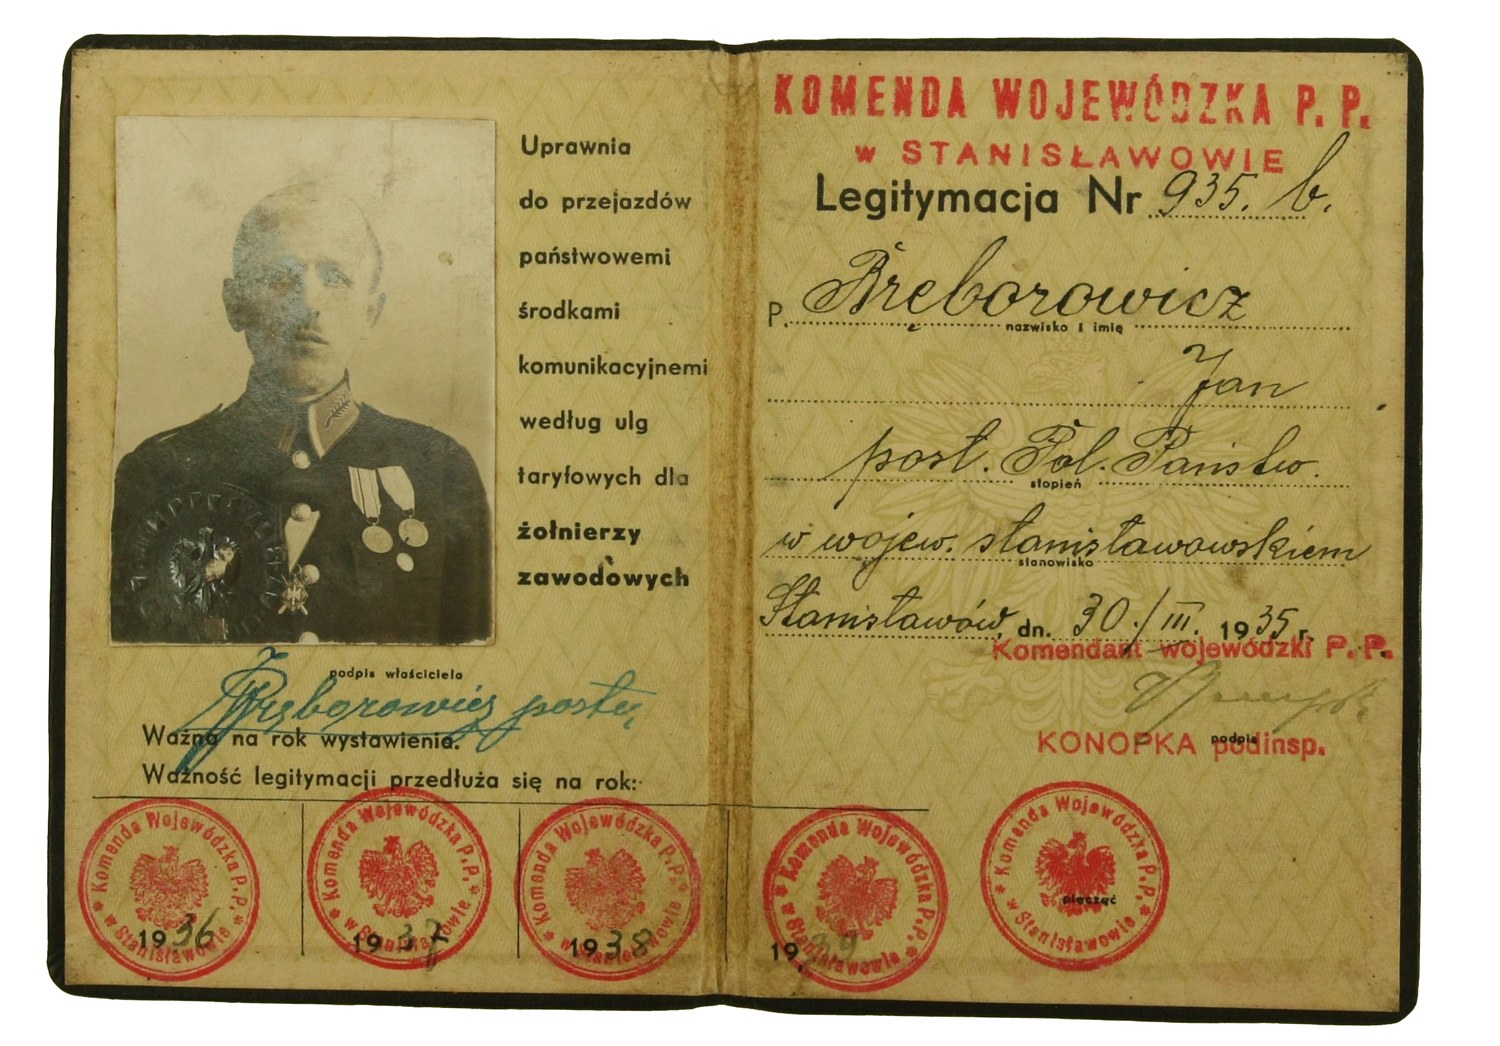 Uprawnia
do przejazdów
państwowemi
środkami
komunikacyjnemi
według ulg
taryfowych dla
żołnierzy
zawodowych
podpis właściciela
Ważna na rok wystawienia.
Ważność legitymacji przedłuża się na rok:
Komenda Wojewódzka P.P. * w Stanisławowie *
1936
Komenda Wojewódzka P.P. * w Stanisławowie *
1937
Komenda Wojewódzka P.P. * w Stanisławowie *
1938
KOMENDA WOJEWÓDZKA P. P.
w STANISŁAWOWIE
Legitymacja Nr 935. b.
P. Bręborowicz
nazwisko i imię
Jan
post. Pol. Państw.
stopień
w wojew. stanisławowskiem
stanowisko
Stanisławów, dn. 30./III. 1935 r.
Komendant wojewódzki P. P.
KONOPKA podinsp.
podpis
Komenda Wojewódzka P.P. * w Stanisławowie *
1939
Komenda Wojewódzka P.P. * w Stanisławowie *
pieczęć